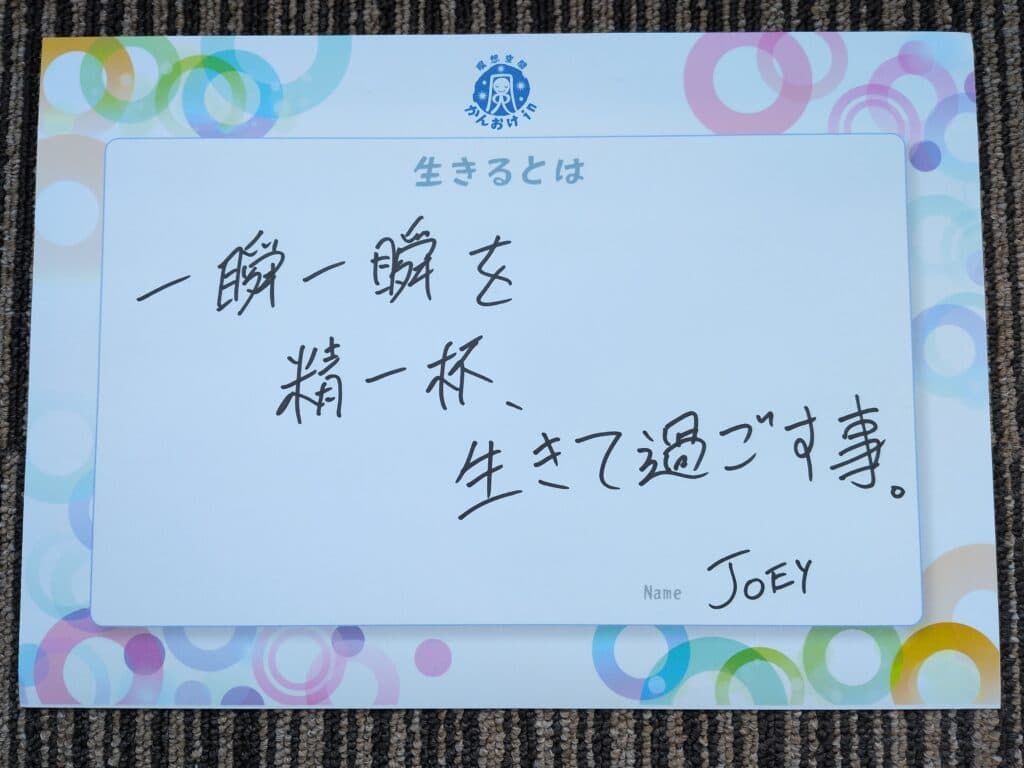 瞑想空間
かんおけin
生きるとは
一瞬一瞬を
精一杯、
生きて過ごす事。
Name JOEY